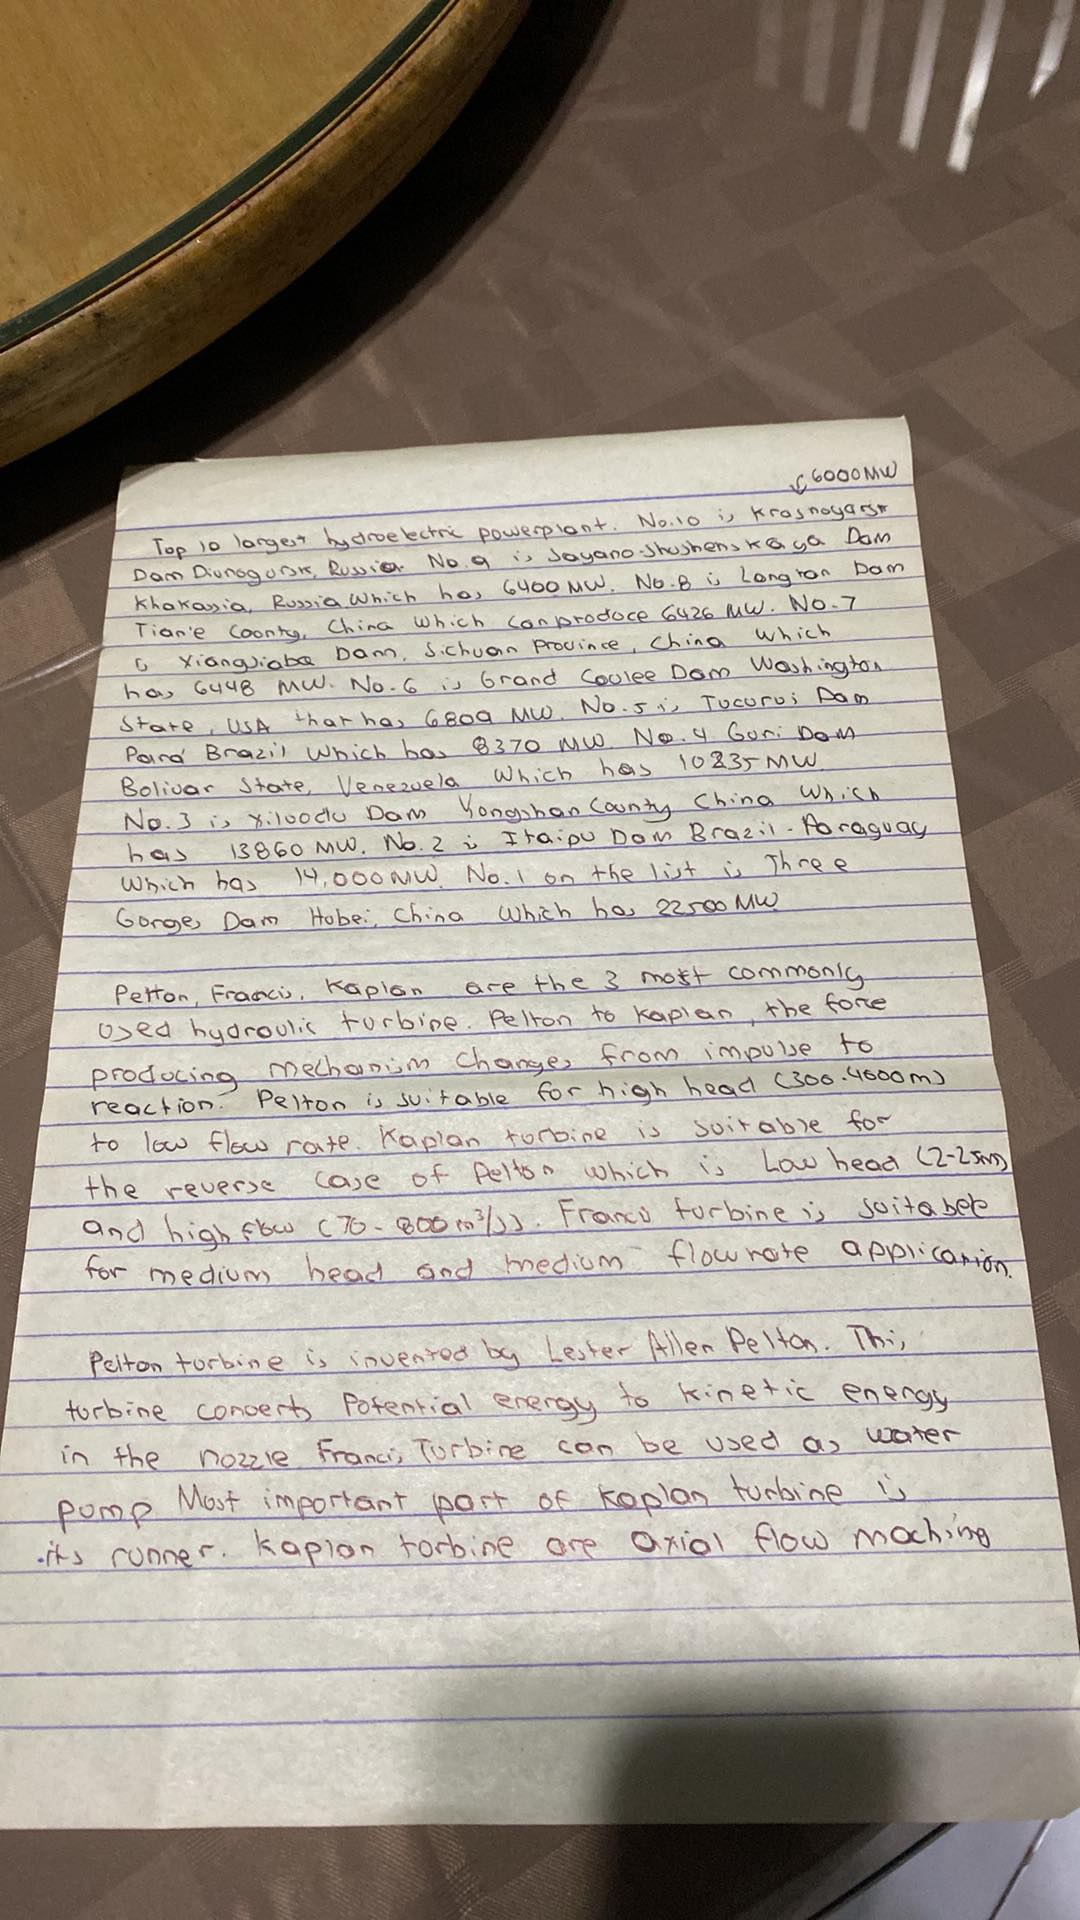 ↓6000MW
Top 10 largest hydroelectric powerplant. No.10 is Krasnoyarsk
Dam Divnogorsk, Russia. No.9 is Sayano-Shushenskaya Dam
Khakassia, Russia Which has 6400 MW. No.8 is Longtan Dam
Tian'e County, China Which can produce 6426 MW. No.7
is Xiangjiaba Dam, Sichuan Province, China Which
has 6448 MW. No.6 is Grand Coulee Dam Washington
State, USA that has 6809 MW. No.5 is Tucurui Dam
Pará Brazil Which has 8370 MW. No.4 Guri Dam
Bolivar State, Venezuela Which has 10235 MW
No.3 is Xiluodu Dam Yongshan County China Which
has 13860 MW. No.2 is Itaipu Dam Brazil-Paraguay
Which has 14,000MW. No.1 on the list is Three
Gorges Dam Hubei, China Which has 22500 MW
Pelton, Francis, Kaplan are the 3 most commonly
used hydraulic turbine. Pelton to Kaplan, the force
producing mechanism changes from impulse to
reaction. Pelton is suitable for high head (300-4000m)
to low flow rate. Kaplan turbine is suitable for
the reverse case of Pelton which is Low head (2-25m)
and high flow (70-800 m³/s). Francis turbine is suitabel
for medium head and medium flowrate application.
Pelton turbine is invented by Lester Allen Pelton. This
turbine converts Potential energy to kinetic energy
in the nozzle Francis Turbine can be used as water
pump Most important part of Kaplan turbine is
its runner. Kaplan turbine are axial flow machine